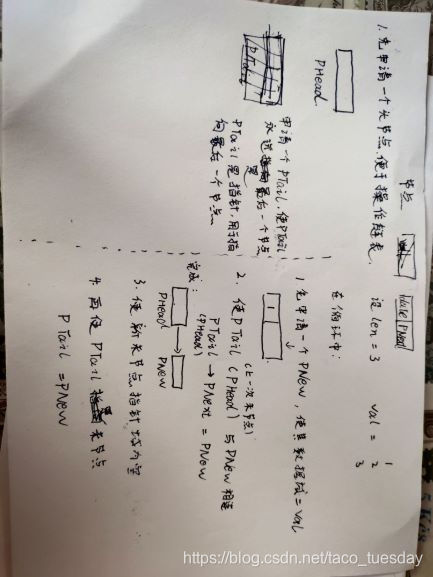 节点
date|PNext
1. 先申请一个头节点,便于操作链表.
PHead
申请一个PTail,使PTail
永远是最后一个节点
PTail是指针,用于指
向最后一个节点
设len = 3 val = 1
2
3
在循环中:
1. 先申请一个PNew, 使其数据域=val
2. 使PTail (PHead) 与PNew相连
(上一次末节点)
PTail → PNext = PNew
(PHead)
完成:
PHead
PNew
3. 使新末节点指针域为空
4. 再使PTail 末节点
PTail = PNew
https://blog.csdn.net/taco_tuesday